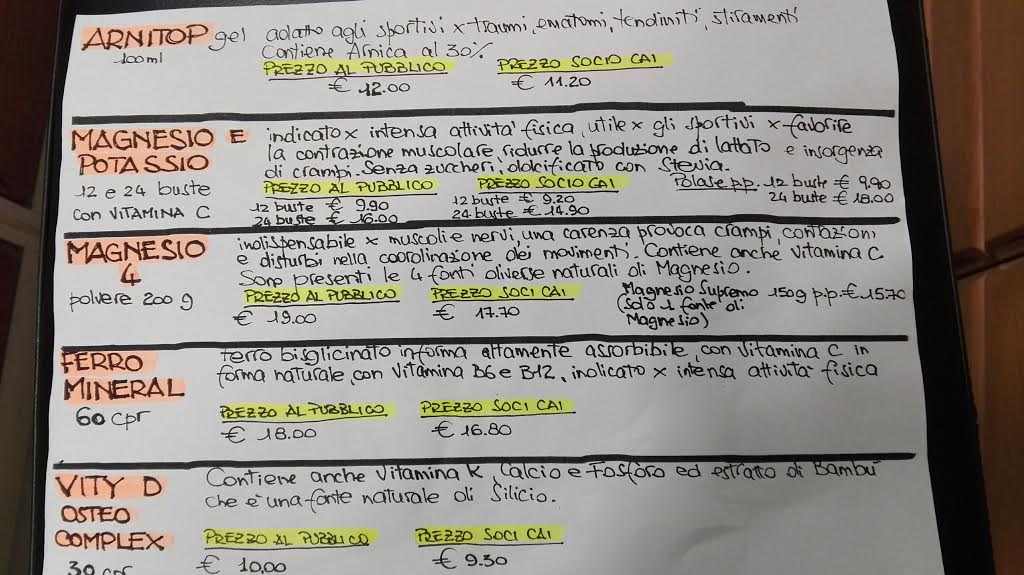 ARNITOP gel adatto agli sportivi x traumi, ematomi, tendiniti, stiramenti
100ml Contiene Arnica al 30%
PREZZO AL PUBBLICO PREZZO SOCIO CAI
€ 12.00 € 11.20
MAGNESIO E indicato x intensa attività fisica, utile x gli sportivi x favorire
POTASSIO la contrazione muscolare ridurre la produzione di lattato e insorgenza
di crampi. Senza zuccheri, dolcificato con Stevia.
12 e 24 buste PREZZO AL PUBBLICO PREZZO SOCIO CAI Polase p.p. 12 buste € 9,90
con VITAMINA C 12 buste € 9.90 12 buste € 9.20 24 buste € 18.00
24 buste € 16.00 24 buste € 14.90
MAGNESIO indispensabile x muscoli e nervi, una carenza provoca crampi, contrazioni
4 e disturbi nella coordinazione dei movimenti. Contiene anche Vitamina C.
Sono presenti le 4 fonti diverse naturali di Magnesio.
polvere 200 g PREZZO AL PUBBLICO PREZZO SOCI CAI Magnesio Supremo 150g p.p. € 15.70
€ 19.00 € 17.70 (solo 1 fonte di
Magnesio)
FERRO ferro bisglicinato in forma altamente assorbibile, con Vitamina C in
MINERAL forma naturale, con Vitamina B6 e B12, indicato x intensa attività fisica
60 cpr PREZZO AL PUBBLICO PREZZO SOCI CAI
€ 18.00 € 16.80
VITY D Contiene anche Vitamina K, Calcio e Fosforo ed estratto di Bambù
OSTEO che è una fonte naturale di Silicio.
COMPLEX PREZZO AL PUBBLICO PREZZO SOCI CAI
30 cpr € 10,00 € 9.30